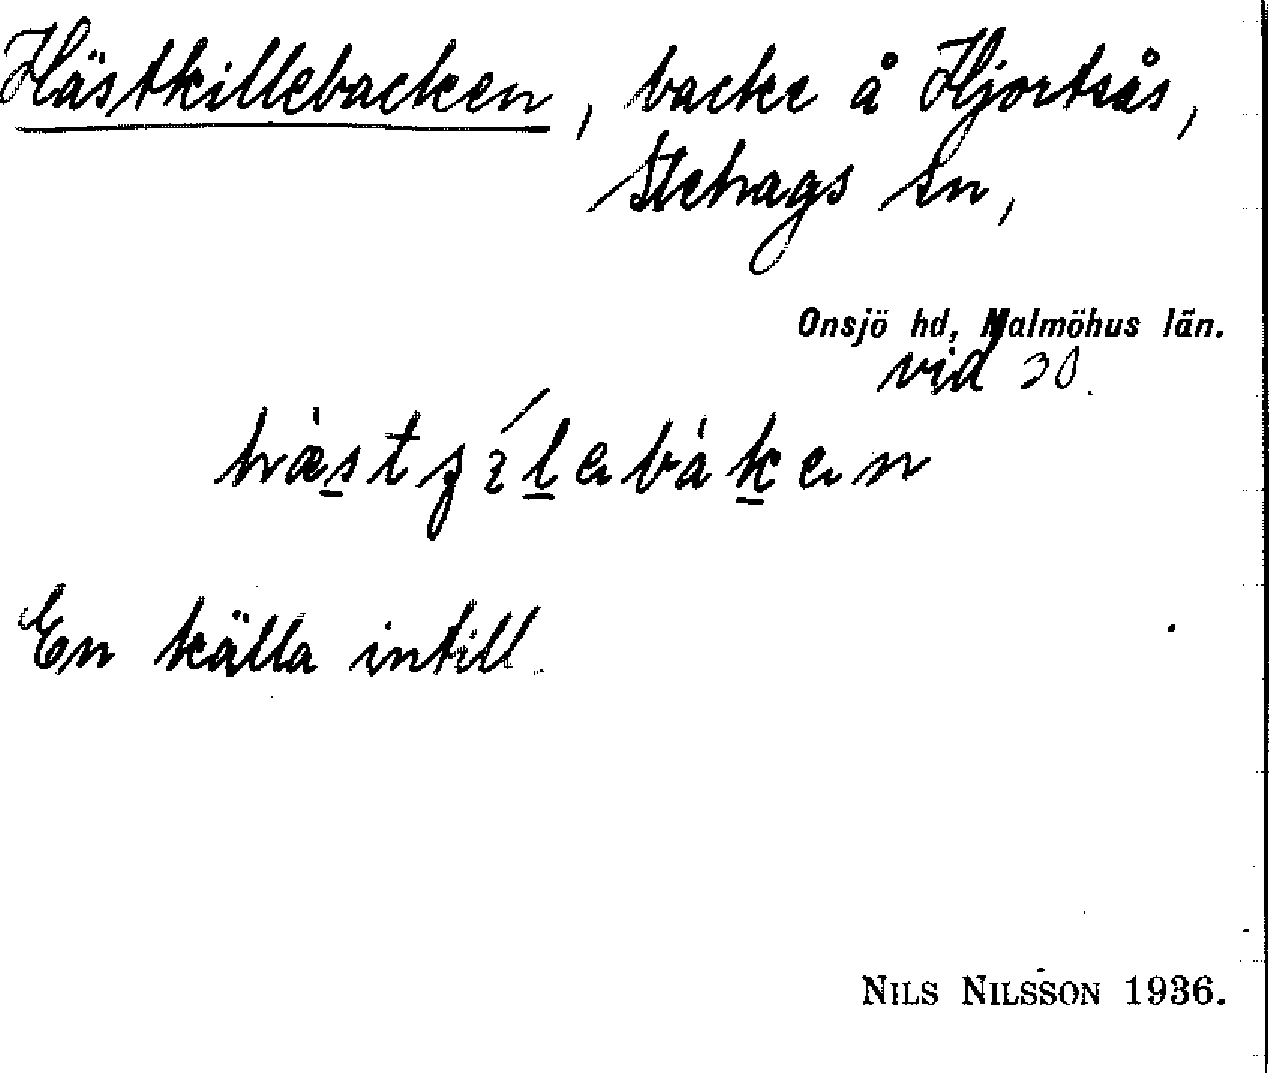 Hästkillebacken, backe å Hjortsås,
Stehags sn,
Onsjö hd, Malmöhus län.
vid 30.
En källa intill.
NILS NILSSON 1936.